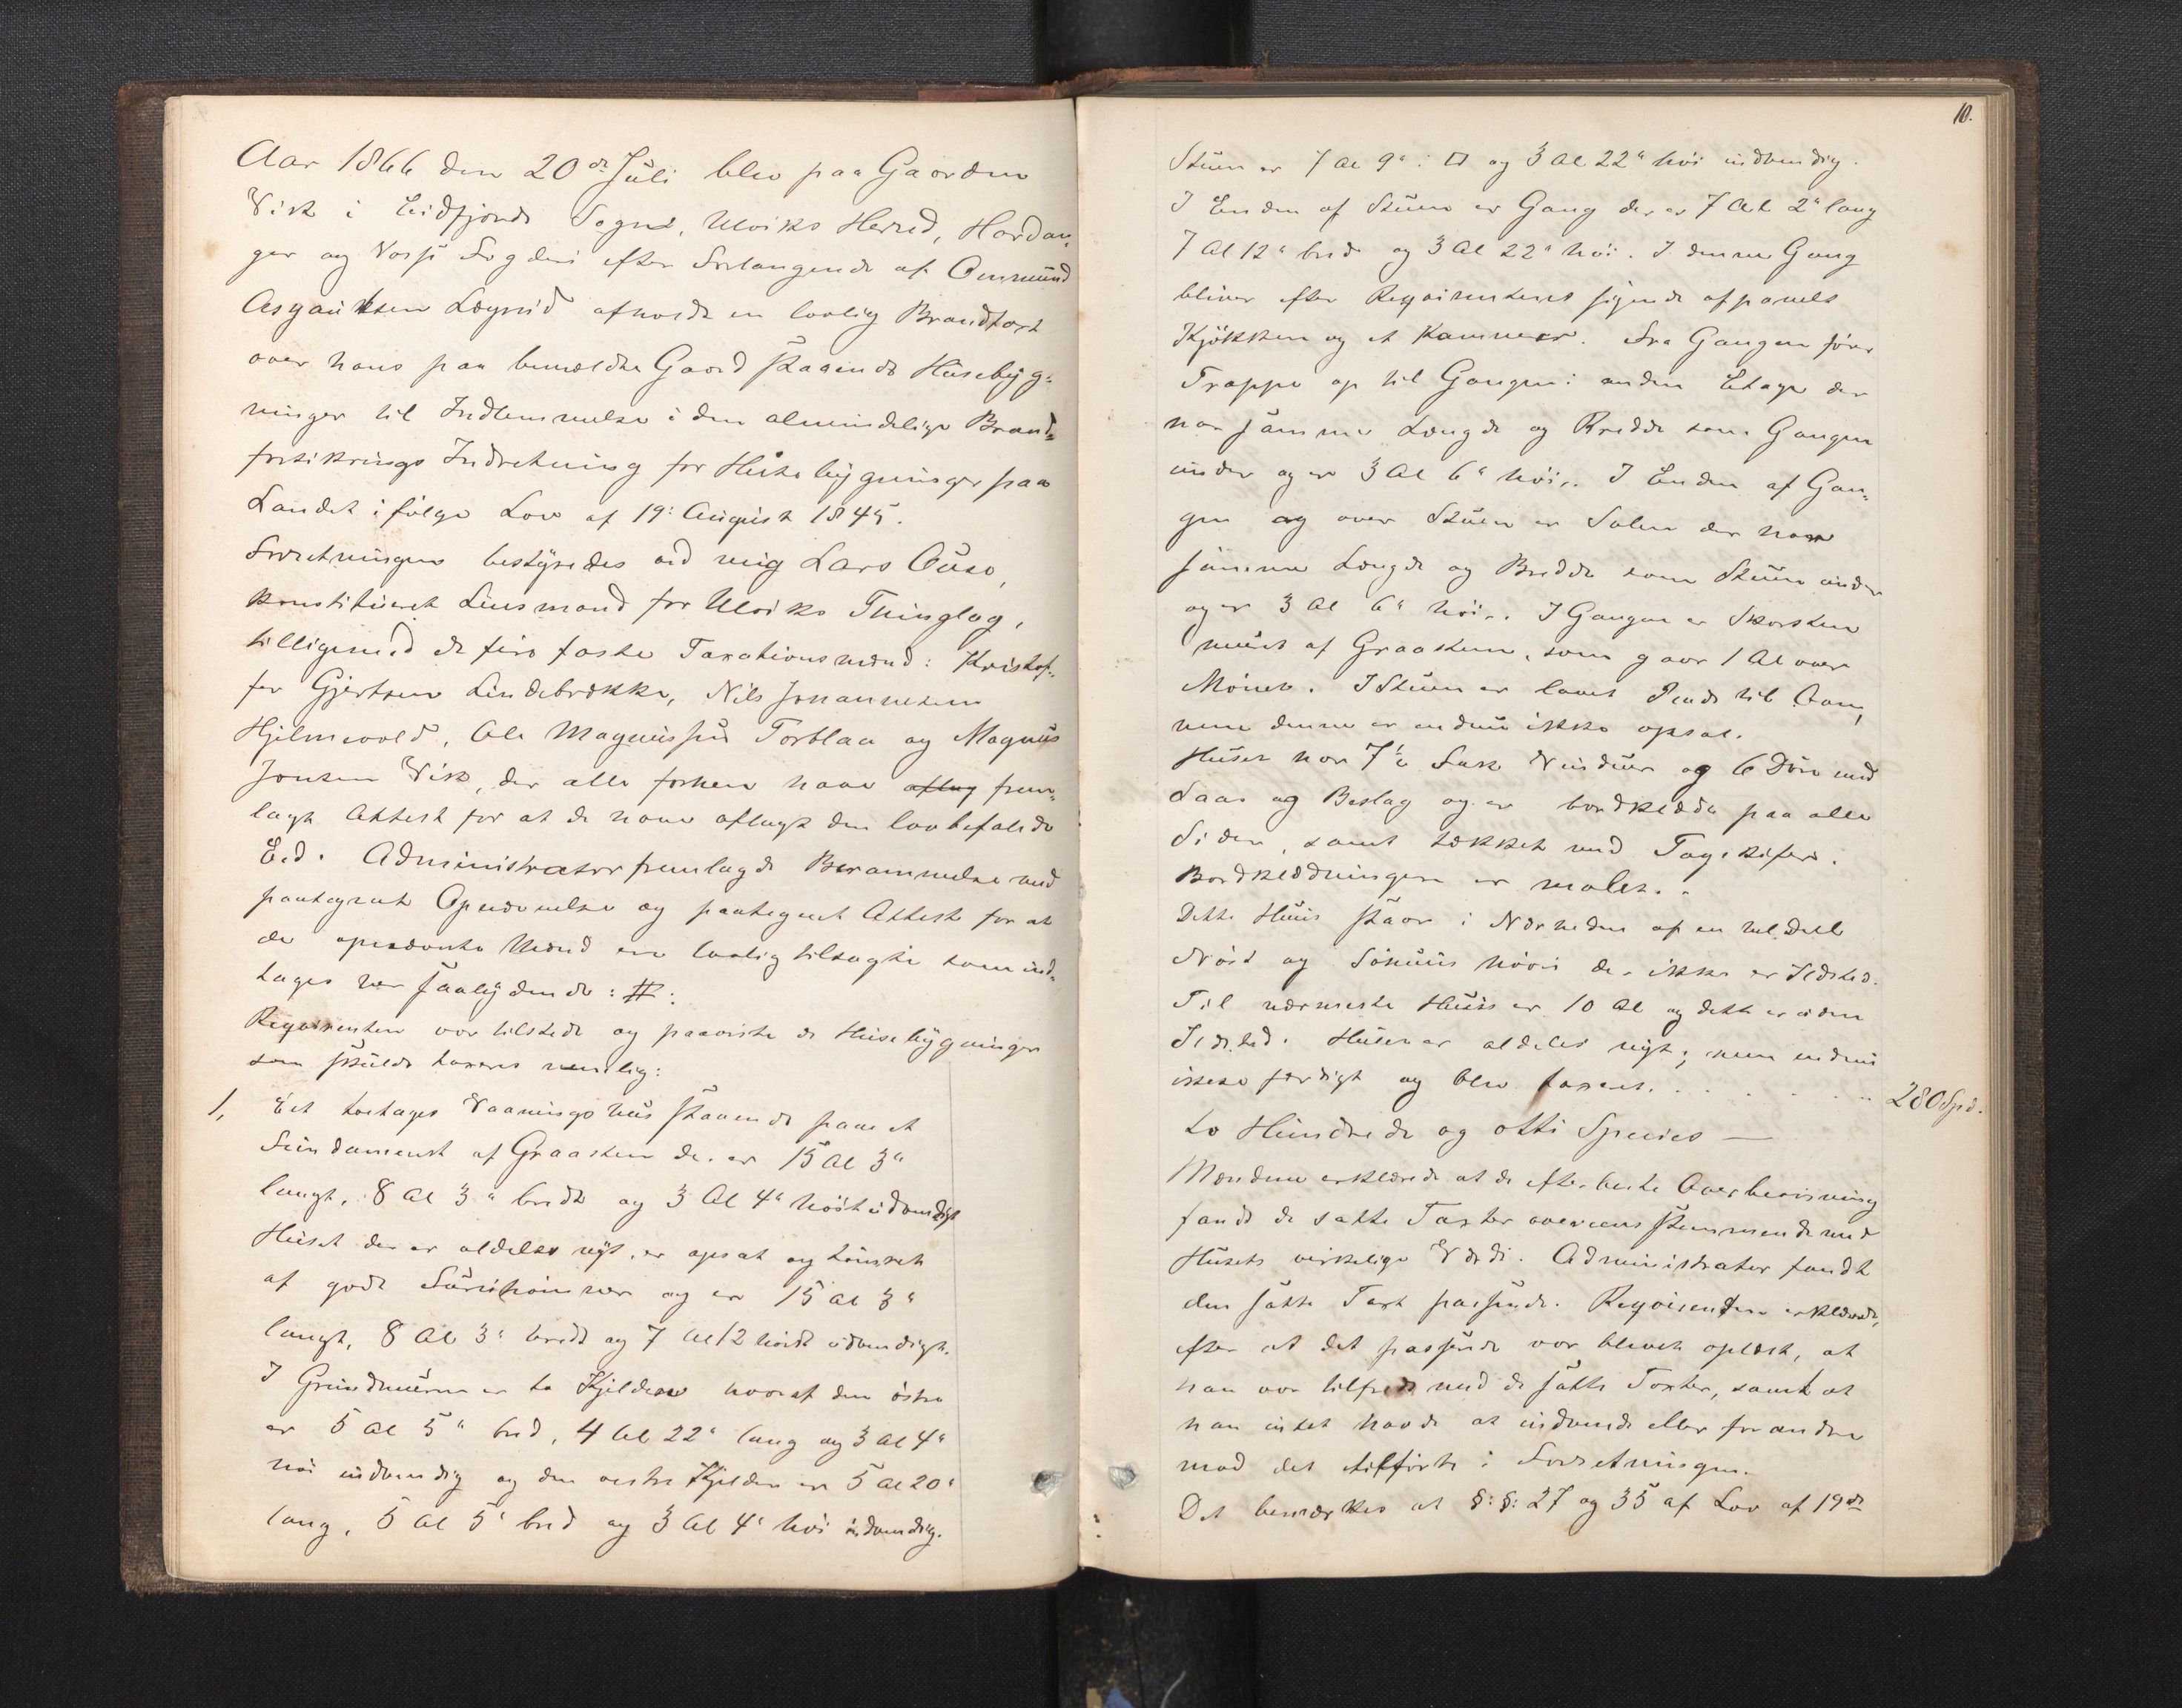 Aar 1866 den 20de Juli blev paa Gaarden
Vik i Eidfjords Sogn, Ulviks Herred, Hardan-
ger og Voss's Fogderi efter Forlangende af Aamund
Asgautsen Lægreid afholdt en lovlig Brandtaxt
over hans paa bemeldte Gaard staaende Husebyg-
ninger til Indlemmelse i den almindelige Brand-
forsikrings Indretning for Husebygninger paa
Landet ifølge Lov af 19: August 1845.
Forretningen bestyredes ved mig Lars
konstitueret Lensmand for Ulviks Thinglag,
tilligemed de fire faste Taxationsmænd: Kristof-
fer Gjertsen Lindebrække, Nils Johannesen
Hjelmevold, Ole Magnussen Torblaa og Magnus
Jonsen Vik, der alle forhen have aflag frem-
lagt Attest for at de have aflagt den lovbefalede
Eed. Administrator fremlagde Berammelse med
paategnet Opnævnelse og paategnet Attest for at
de opnævnte Mænd ere lovlig tilsagte som ind-
tages her saalydende: #:
Reqvirenten var tilstede og paaviste de Husebygninger
som skulde taxeres nemlig:
1, Eet toetages Vaaningshus staaende paa et
Fundament af Graasten der er 15 Al 3"
langt, 8 Al 3" bredt og 3 Al 4" høit udvendigt
Huset der er aldeles nyt, er opsat og tømret
af godt Furutømmer og er 15 Al 3"
langt, 8 Al 3" bredt og 7 Al 12 høidt udvendigt.
I Grundmuren er to Kjeldere hvoraf den østre
er 5 Al 5" bred, 4 Al 22" lang og 3 Al 4"
høi indvendig og den vestre Kjelder er 5 Al 20"
lang, 5 Al 5" bred og 3 Al 4" høi indvendig.
10.
Stuen er 7 Al 9" i □ og 3 Al 22" høi indvendig.
I Enden af Stuen er Gang der er 7 Al 2" lang
7 Al 12" bred og 3 Al 22" høi. I denne Gang
bliver efter Reqvirentens sigende afpanelt
Kjøkken og et Kammer. Fra Gangen fører
Trappe op til Gangen i anden Etage der
har samme Længde og Bredde som Gangen
under og er 3 Al 6" høi. I Enden af Gan-
gen og over Stuen er Salen der har
samme Længde og Bredde som Stuen under
og er 3 Al 6" høi. I Gangen er Skorsten
muret af Graasten, som gaar 1 Al over
Mønet. I Stuen er lavet til Ovn,
men denne er endnu ikke opsat.
Huset har 7½ Fack Vinduer og 6 Døre med
Laas og Beslag og er bordklædt paa alle
Sider, samt tækket med Tagskifer.
Bordklædningen er malet.
Dette Huus staar i Nærheden af en
Nøst og Søhuus hvori der ikke er Ildsted.
Til nærmeste Huus er 10 Al og dette er uden
Ildsted. Huset er aldeles nyt, men endnu
ikke færdigt og blev taxeret. . . . . . . . 280 Spd.
to Hundrede og otti Species —
Mændene erklærede at de efter beste Overbevisning
fandt de satte Taxter overeensstemmende med
Husets virkelige Værdi. Administrator fandt
den satte Taxt passende. Reqvirenten erklærede,
efter at det passerede var blevet oplæst, at
han var tilfreds med de satte Taxter, samt at
han intet havde at indvende eller forandre
mod det tilførte i Forretningen.
Det bemærkes at §:§: 27 og 35 af Lov af 19de